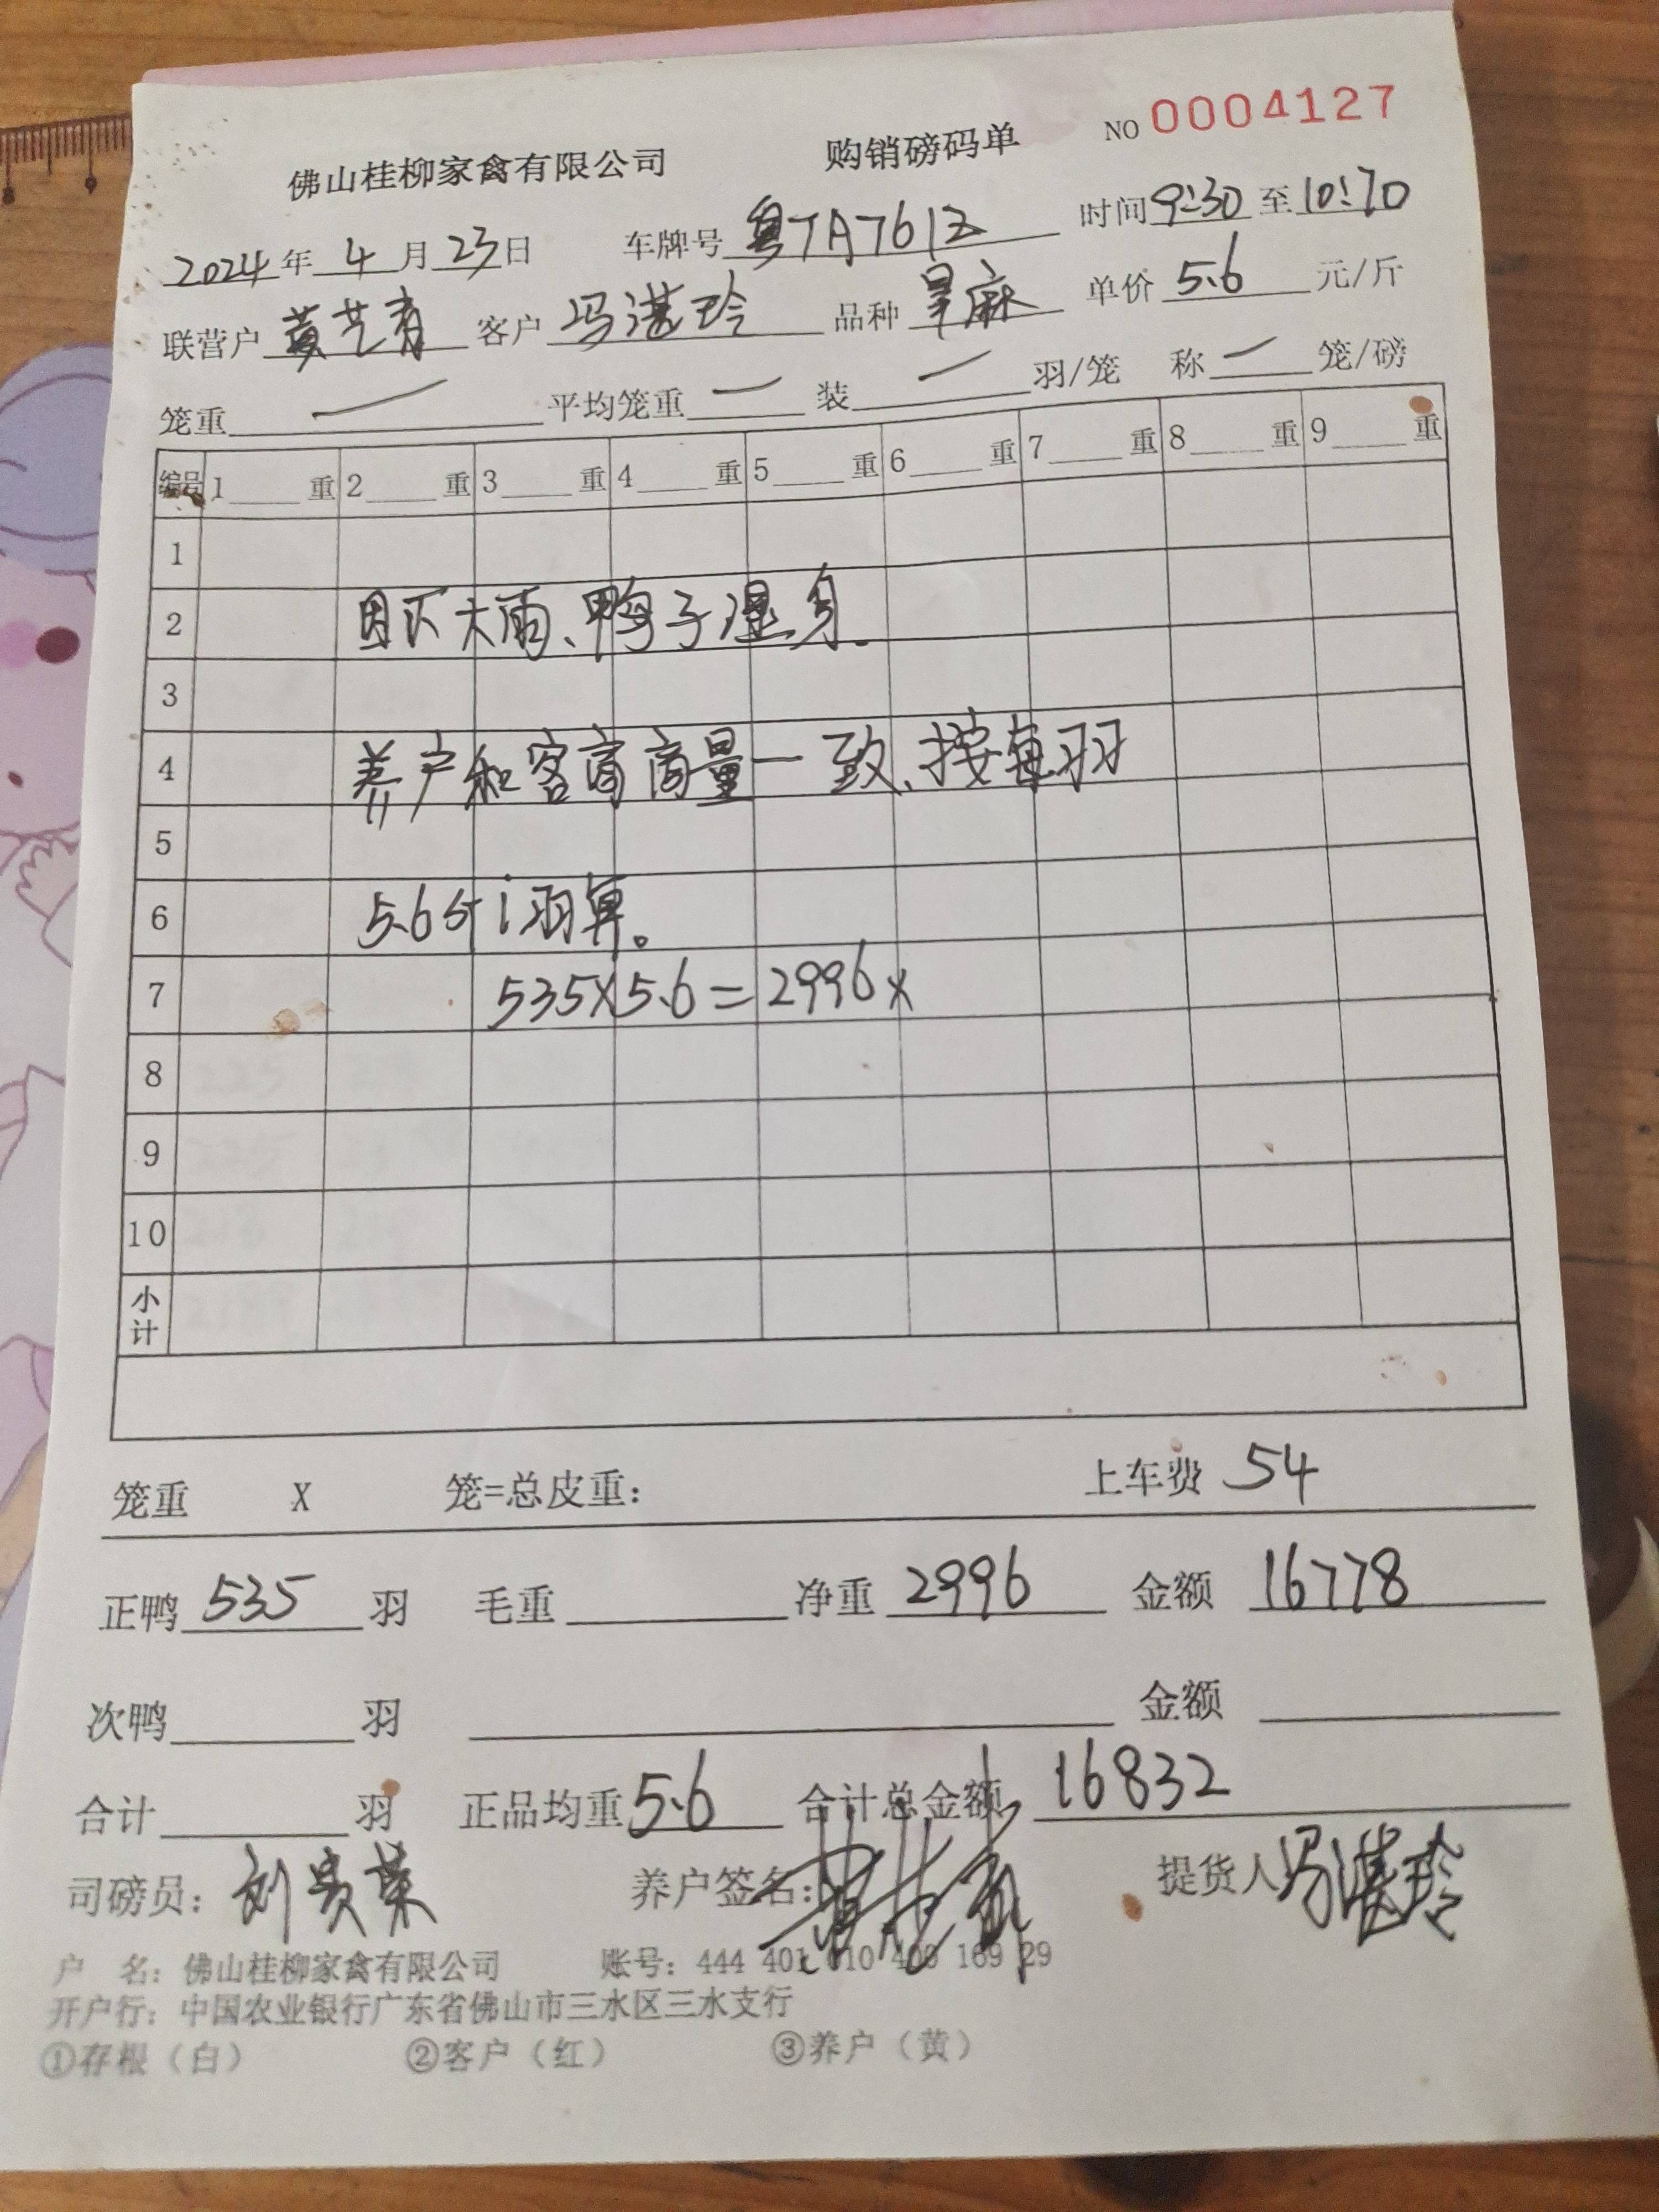 佛山桂柳家禽有限公司 购销磅码单 NO 0004127
2024年4月23日 车牌号 粤TA761Z 时间 9:30 至 10:10
联营户 黄艺青 客户 冯湛玲 品种 旱麻 单价 5.6 元/斤
笼重 一 平均笼重 一 装 一 羽/笼 称 一 笼/磅
编号 1 重 2 重 3 重 4 重 5 重 6 重 7 重 8 重 9 重
1
2 因下大雨、鸭子湿身。
3
4 养户和客商商量一致、按每羽
5
6 5.6斤/羽算。
7 535×5.6=2996
8
9
10
小计
笼重 X 笼=总皮重: 上车费 54
正鸭 535 羽 毛重 净重 2996 金额 16778
次鸭 羽 金额
合计 羽 正品均重 5.6 合计总金额 16832
司磅员: 刘贵荣 养户签名: 提货人 冯湛玲
户 名: 佛山桂柳家禽有限公司 账号: 444 401 010 400 169 29
开户行: 中国农业银行广东省佛山市三水区三水支行
①存根(白) ②客户(红) ③养户(黄)